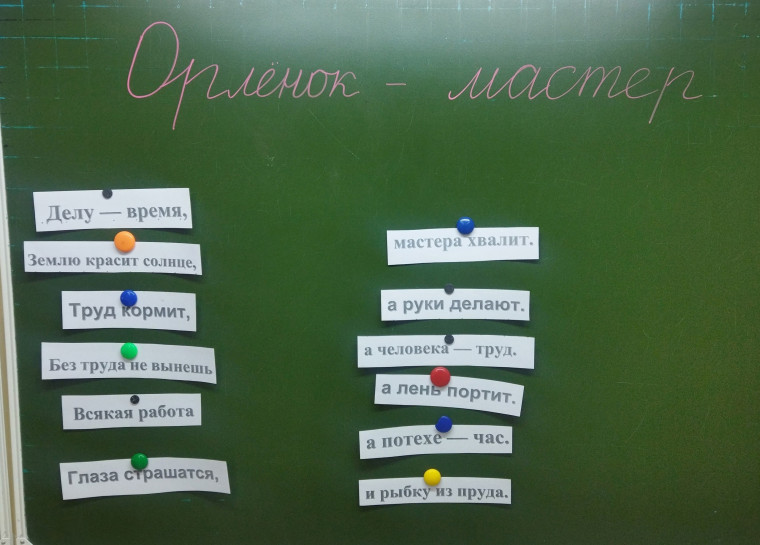 Орлёнок - мастер
Делу — время,
Землю красит солнце,
Труд кормит,
Без труда не вынешь
Всякая работа
Глаза страшатся,
мастера хвалит.
а руки делают.
а человека — труд.
а лень портит.
а потехе — час.
и рыбку из пруда.